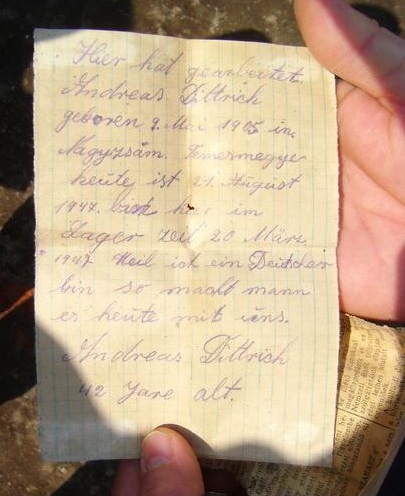 Hier hat gearbeitet.
Andreas Dittrich
geboren 9. Mai 1905 in
Nagyzsám. Temesmegye
heute ist 21. August
1947. im
Lager zeit 20 März
1947 Weil ich ein Deutscher
bin so macht mann
es heute mit uns.
Andreas Dittrich
42 Jare alt.